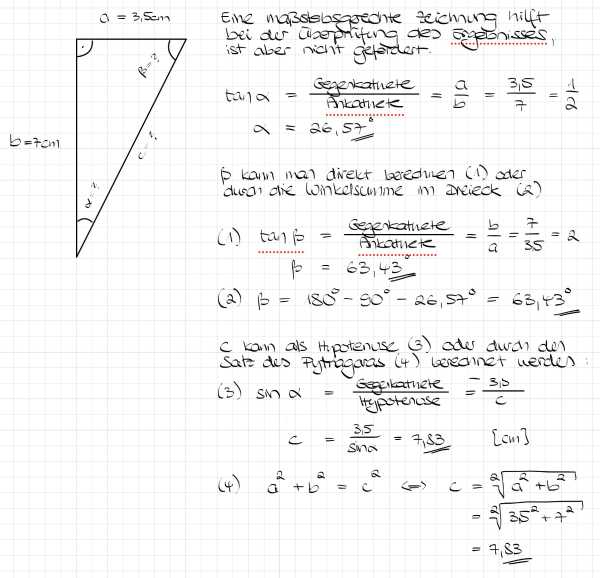 a = 3,5cm
b = 7cm
β = ?
c = ?
α = ?
Eine maßstabsgerechte Zeichnung hilft
bei der Überprüfung des Ergebnisses,
ist aber nicht gefordert.
tan α = Gegenkathete / Ankathete = a / b = 3,5 / 7 = 1 / 2
α = 26,57°
β kann man direkt berechnen (1) oder
durch die Winkelsumme im Dreieck (2)
(1) tan β = Gegenkathete / Ankathete = b / a = 7 / 3,5 = 2
β = 63,43°
(2) β = 180° - 90° - 26,57° = 63,43°
c kann als Hypotenuse (3) oder durch den
Satz des Pythagoras (4) berechnet werden:
(3) sin α = Gegenkathete / Hypotenuse = 3,5 / c
c = 3,5 / sin α = 7,83 [cm]
(4) a² + b² = c² ⇔ c = ²√(a² + b²)
= ²√(3,5² + 7²)
= 7,83